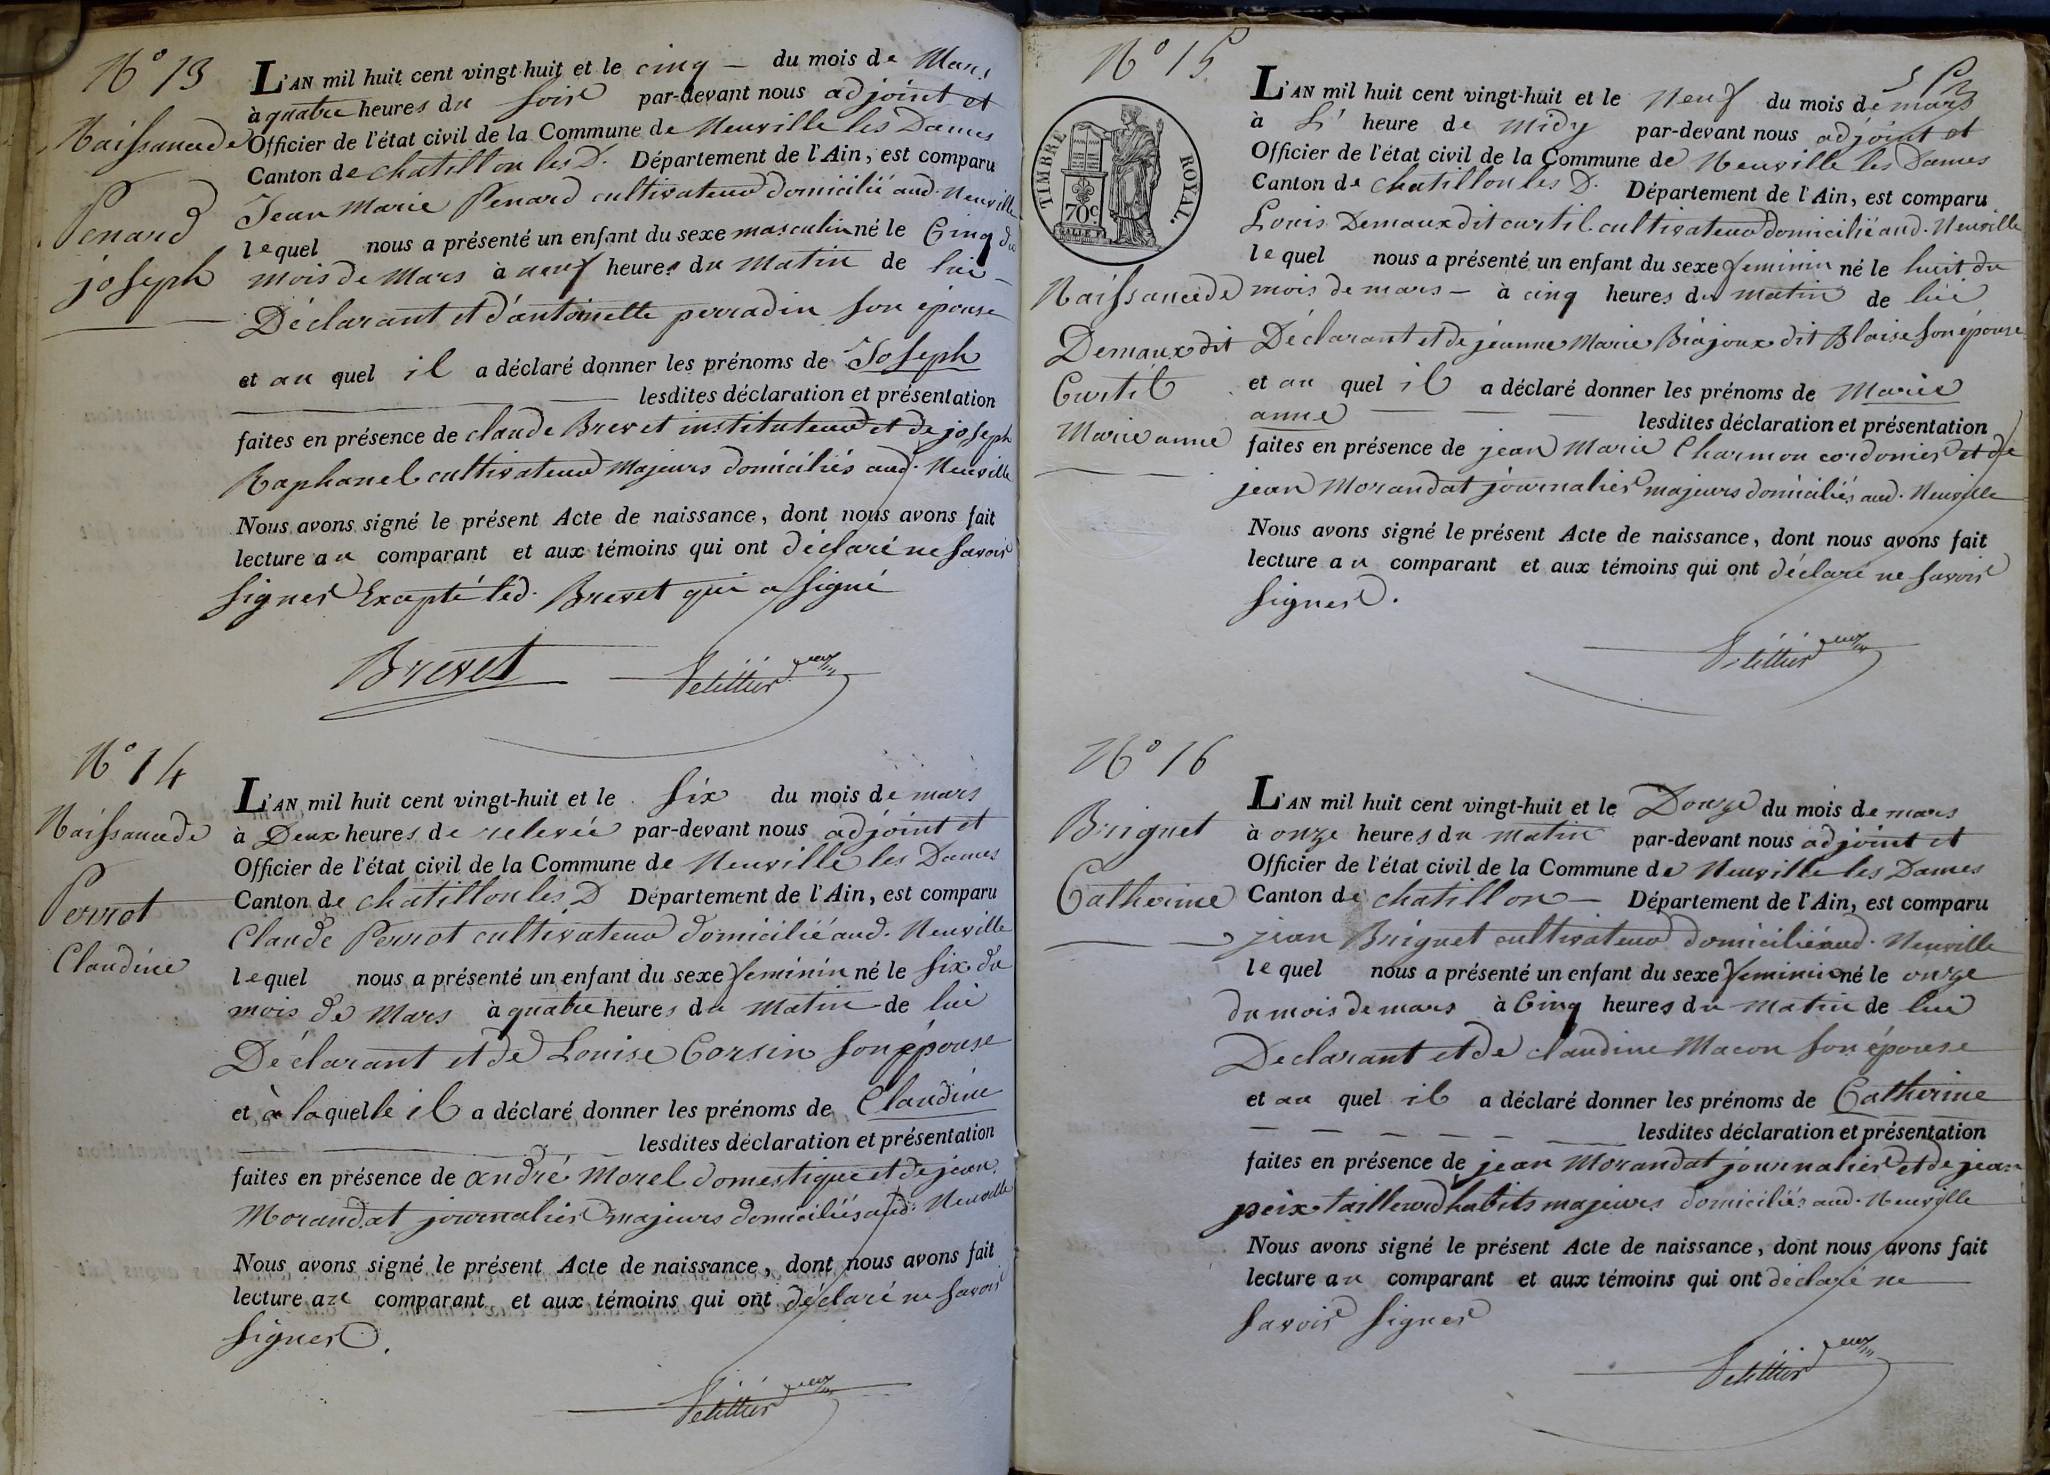 N° 13
Naissance de
Penard
joseph
L'AN mil huit cent vingt-huit et le cinq — du mois de Mars
à quatre heures du soir par-devant nous adjoint et
Officier de l'état civil de la Commune de Neuville les Dames
Canton de chatillon les D. Département de l'Ain, est comparu
Jean Marie Penard cultivateur domicilié aud. Neuville
lequel nous a présenté un enfant du sexe masculin né le Cinq du
mois de Mars à neuf heures du matin de lui
Déclarant et d'antoinette perradin son épouse
et au quel il a déclaré donner les prénoms de Joseph
lesdites déclaration et présentation
faites en présence de claude Brevet instituteur et de joseph
Raphanel cultivateur Majeurs domiciliés aud. Neuville
Nous avons signé le présent Acte de naissance, dont nous avons fait
lecture au comparant et aux témoins qui ont déclaré ne savoir
signer Excepté led. Brevet qui a signé
Brevet
N° 14
Naissance de
Perrot
Claudine
L'AN mil huit cent vingt-huit et le six du mois de mars
à Deux heures de relevée par-devant nous adjoint et
Officier de l'état civil de la Commune de Neuville les Dames
Canton de chatillon les D Département de l'Ain, est comparu
Claude Perrot cultivateur domicilié aud. Neuville
lequel nous a présenté un enfant du sexe feminin né le six du
mois de Mars à quatre heures du matin de lui
Déclarant et de Louise Corsin son épouse
et à laquelle il a déclaré donner les prénoms de Claudine
lesdites déclaration et présentation
faites en présence de andré Morel domestique et de jean
Morandat journalier majeurs domiciliés aud. Neuville
Nous avons signé le présent Acte de naissance, dont nous avons fait
lecture au comparant et aux témoins qui ont déclaré ne savoir
signer.
N° 15
TIMBRE ROYAL.
70c.
Naissance de
Demaux dit
Curtil
Marie anne
L'AN mil huit cent vingt-huit et le Neuf du mois de mars
à L' heure de midy par-devant nous adjoint et
Officier de l'état civil de la Commune de Neuville les Dames
Canton de chatillon les D. Département de l'Ain, est comparu
Louis Demaux dit curtil cultivateur domicilié aud. Neuville
lequel nous a présenté un enfant du sexe feminin né le huit du
mois de mars — à cinq heures du matin de lui
Déclarant et de jeanne Marie Biajoux dit Blaise son épouse
et au quel il a déclaré donner les prénoms de Marie
anne lesdites déclaration et présentation
faites en présence de jean Marie Charmon cordonier et de
jean Morandat journalier majeurs domiciliés aud. Neuville
Nous avons signé le présent Acte de naissance, dont nous avons fait
lecture au comparant et aux témoins qui ont déclaré ne savoir
signer.
N° 16
Briguet
Catherine
L'AN mil huit cent vingt-huit et le Douze du mois de mars
à onze heures du matin par-devant nous adjoint et
Officier de l'état civil de la Commune de Neuville les Dames
Canton de chatillon — Département de l'Ain, est comparu
jean Briguet cultivateur domicilié aud. Neuville
lequel nous a présenté un enfant du sexe feminin né le onze
du mois de mars à Cinq heures du matin de lui
Declarant et de claudine Macon son épouse
et au quel il a déclaré donner les prénoms de Catherine
lesdites déclaration et présentation
faites en présence de jean Morandat journalier et de jean
peix tailleur d'habits majeurs domiciliés aud. Neuville
Nous avons signé le présent Acte de naissance, dont nous avons fait
lecture au comparant et aux témoins qui ont déclaré ne
savoir signer